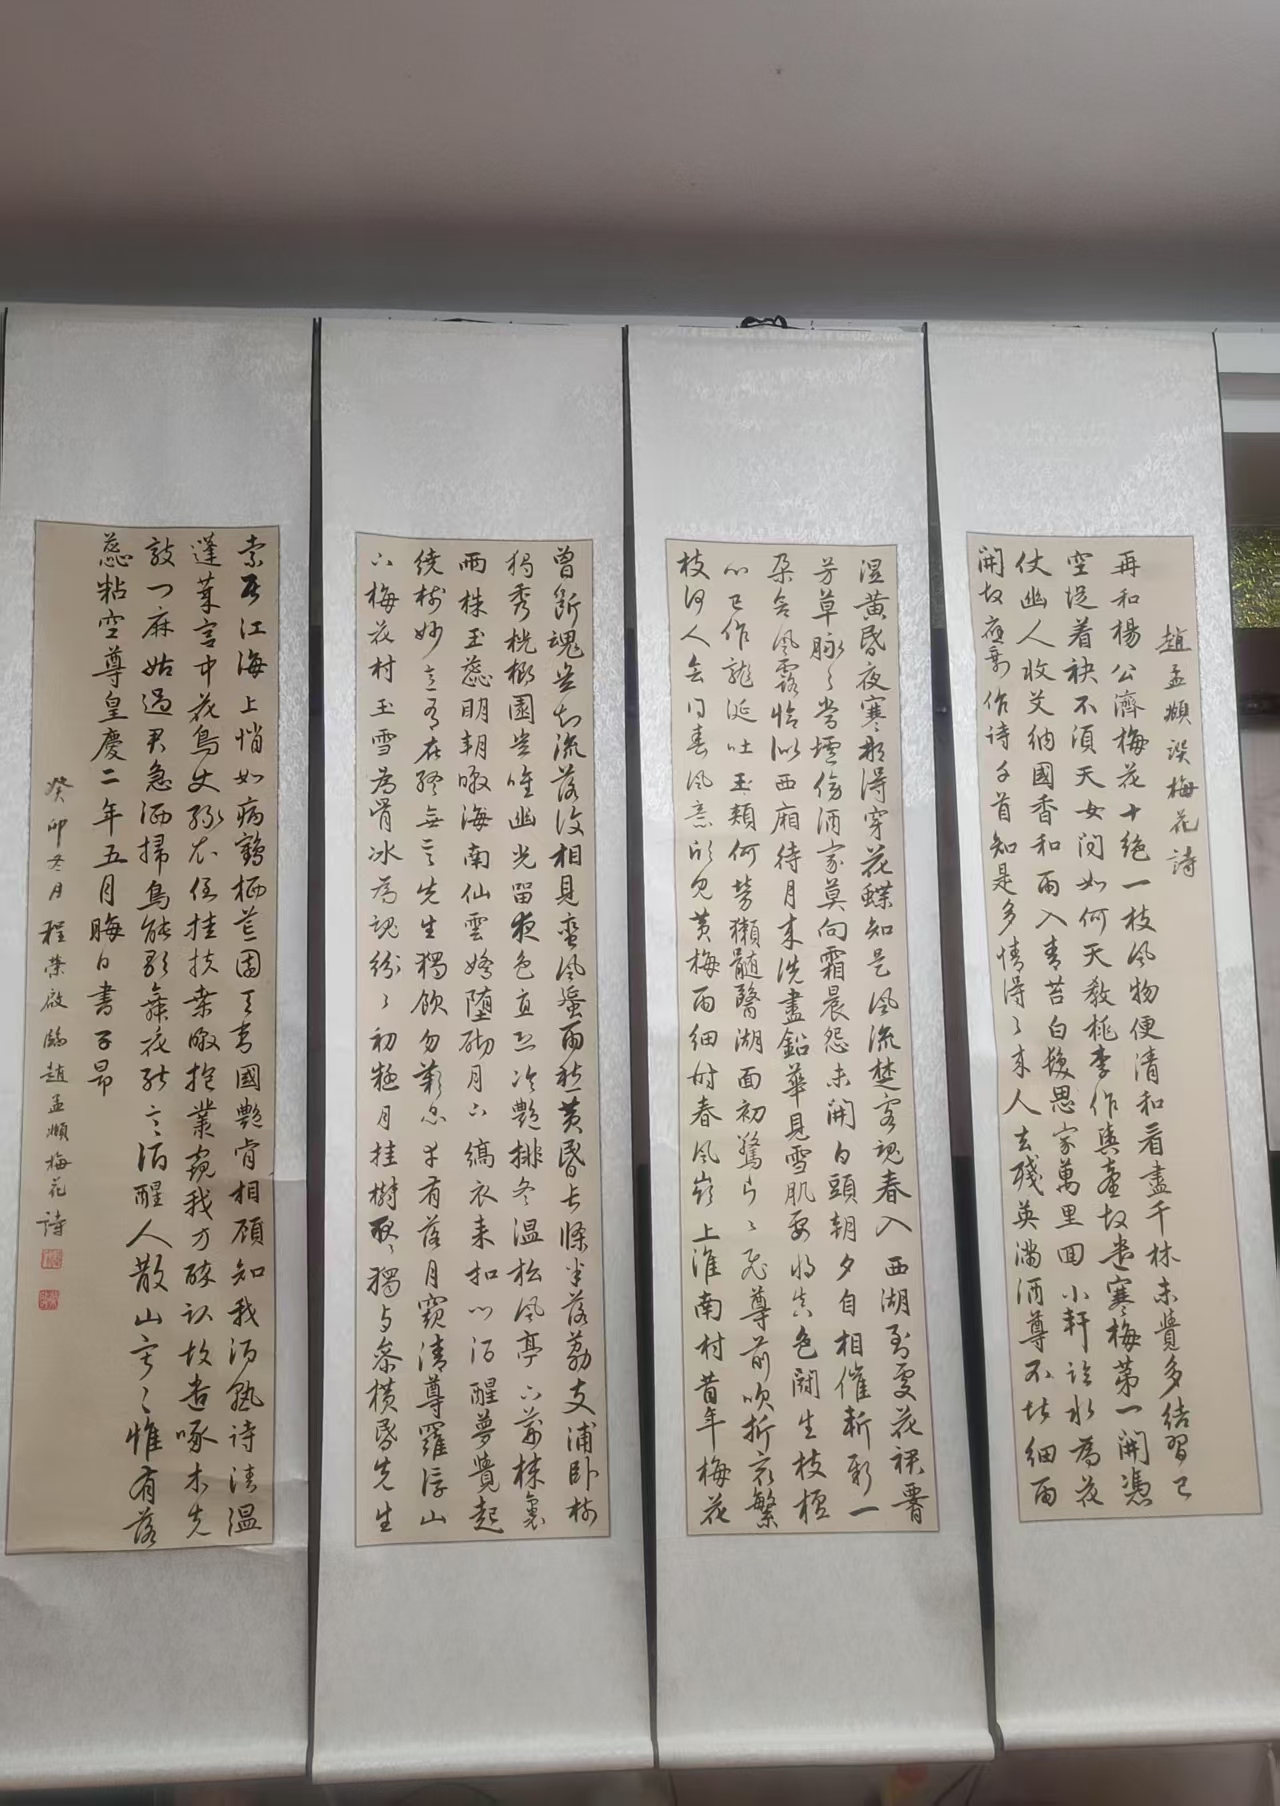 趙孟頫 梅花詩
再和楊公濟梅花十絕一枝風物便清和看盡千林未費多結習已
空從着袂不須天女問如何天教桃李作輿臺故遣寒梅第一開憑
仗幽人收艾納國香和雨入青苔白髮思家萬里回小軒臨水為花
開故應剩作詩千首知是多情得得來人去殘英滿酒尊不堪細雨
濕黃昏夜寒那得穿花蝶知是風流楚客魂春入西湖到處花裙腰
芳草脉脉當壚傍酒家莫向霜晨怨未開白頭朝夕自相催斬新一
朵含風露恰似西廂待月來洗盡鉛華見雪肌要將真色鬪生枝檀
心已作龍涎吐玉頰何勞獺髓醫湖面初驚片片飛尊前吹折最繁
枝何人會得春風意欲見黃梅雨細時春風嶺上淮南村昔年梅花
曾斷魂豈知流落復相見蠻風蜑雨愁黃昏長條半落荔支浦卧樹
獨秀桄榔園豈唯幽光留夜色直恐冷艷排冬溫松風亭下荊棘裏
兩株玉蕊明朝暾海南仙雲嬌墮砌月下縞衣來扣門酒醒夢覺起
繞樹妙意有在終無言先生獨飲勿歎息幸有落月窺清尊羅浮山
下梅花村玉雪為骨冰為魂紛紛初疑月挂樹耿耿獨与參橫昏先生
索居江海上悄如病鶴栖荒園天香國艷肯相顧知我酒熟詩清溫
蓬萊宮中花鳥使綠衣倒挂扶桑暾抱叢窺我方醉卧故遣啄木先
敲門麻姑過君急洒掃鳥能歌舞花能言酒醒人散山寂寂惟有落
蕊粘空尊皇慶二年五月晦日書子昂
癸卯冬月程榮啟臨趙孟頫梅花詩